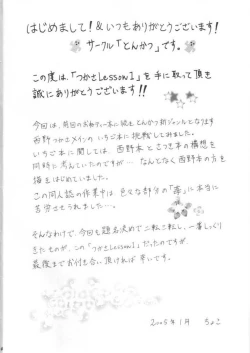 はじめまして!&いつもありがとうございます!
サークル「とんかつ」です。
この度は、「つかさLesson I」を手に取って頂き
誠にありがとうございます!!
今回は、前回の
西野つかさメインのいちご本に挑戦してみました。
いちご本に関しては、西野本とさつき本の構想を
同時に考えていたのですが… なんとなく西野本の方を
描きはじめていました。
この同人誌の作業中は 色々な部分の「毒」に本当に
苦労させられました…。
そんなわけで、今回も題名決めで二転三転し、一番しっくり
きたものが、この「つかさLesson I」だったのですが、
最後までお付き合い頂ければ幸いです。
2005年1月